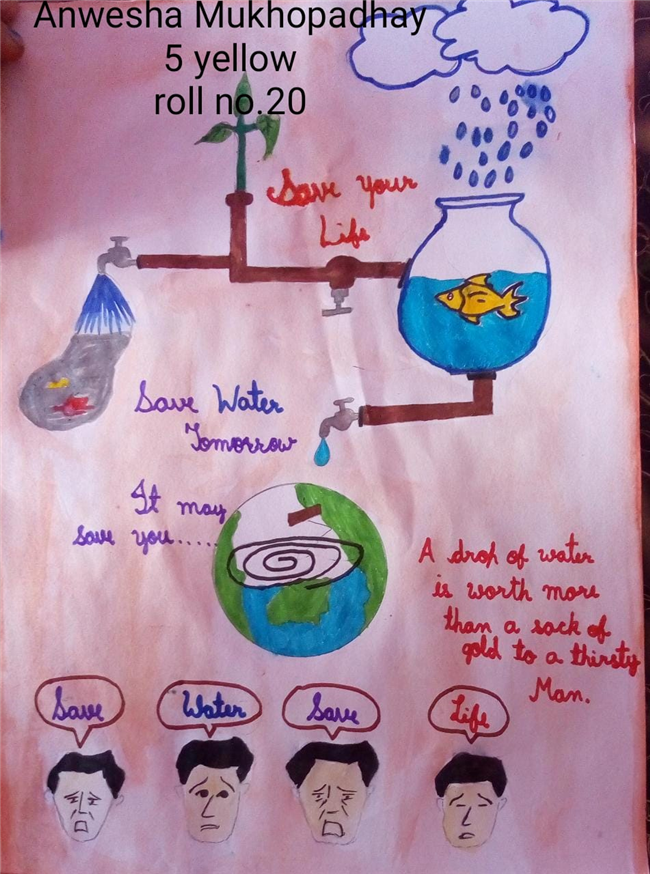 Anwesha Mukhopadhay
5 yellow
roll no.20
Save your
Life
Save Water
Tomorrow
It may
save you.....
A drop of water
is worth more
than a sack of
gold to a thirsty
Man.
Save
Water
Save
Life